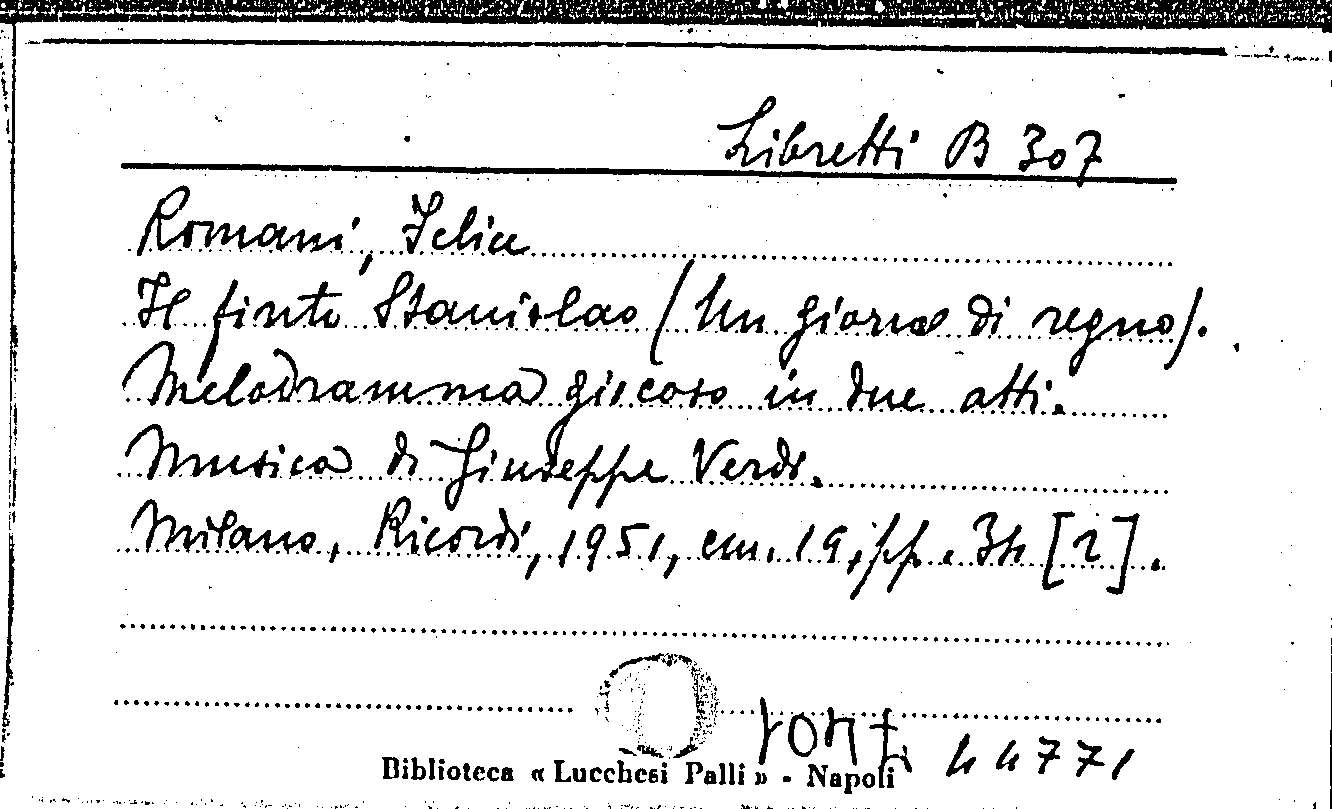 Libretti B 307
Romani, Felice
Il finto Stanislao (Un giorno di regno).
Melodramma giocoso in due atti.
Musica di Giuseppe Verdi.
Milano, Ricordi, 1951, cm. 19, pp. 34 [2].
44771
Biblioteca « Lucchesi Palli » - Napoli